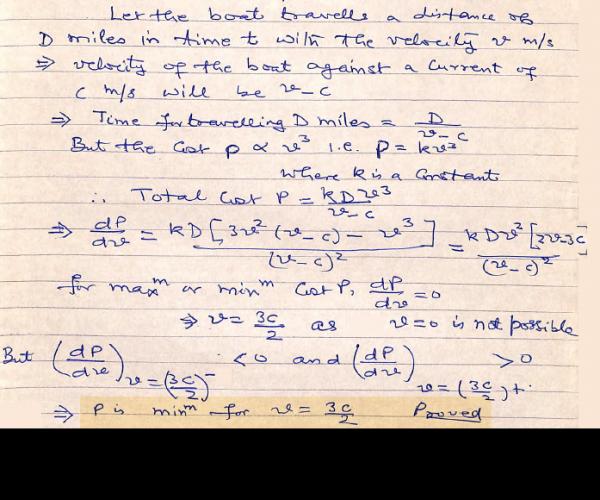 Let the boat travells a distance of
D miles in time t with the velocity v m/s
⇒ velocity of the boat against a current of
c m/s will be v-c
⇒ Time for travelling D miles = D/(v-c)
But the Cost p ∝ v³ i.e. P = kv³
where k is a Constant
∴ Total Cost P = kDv³/(v-c)
⇒ dP/dv = kD[3v²(v-c) - v³]/(v-c)² = kDv²[2v-3c]/(v-c)²
for maxᵐ or minᵐ Cost P, dP/dv = 0
⇒ v = 3c/2 as v=0 is not possible
But (dP/dv) v=(3c/2)⁻ <0 and (dP/dv) v=(3c/2)+ >0
⇒ P is minᵐ for v = 3c/2 Proved